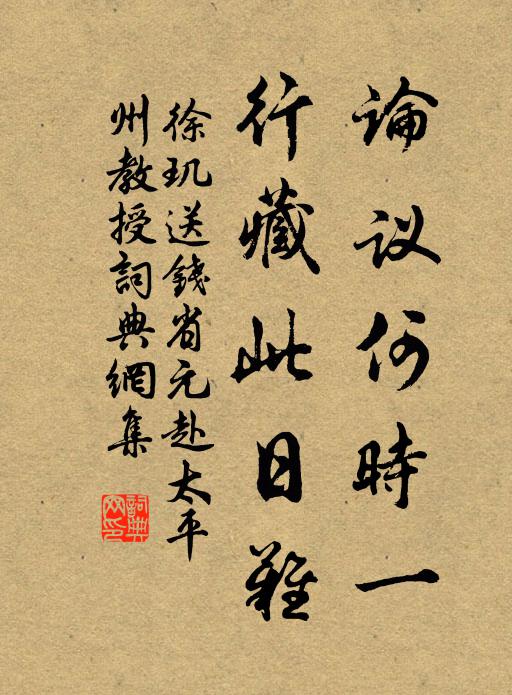 論议何時一
行藏此日難
徐玑送錢省元赴太平
州教授詞典網集
詞典
网印